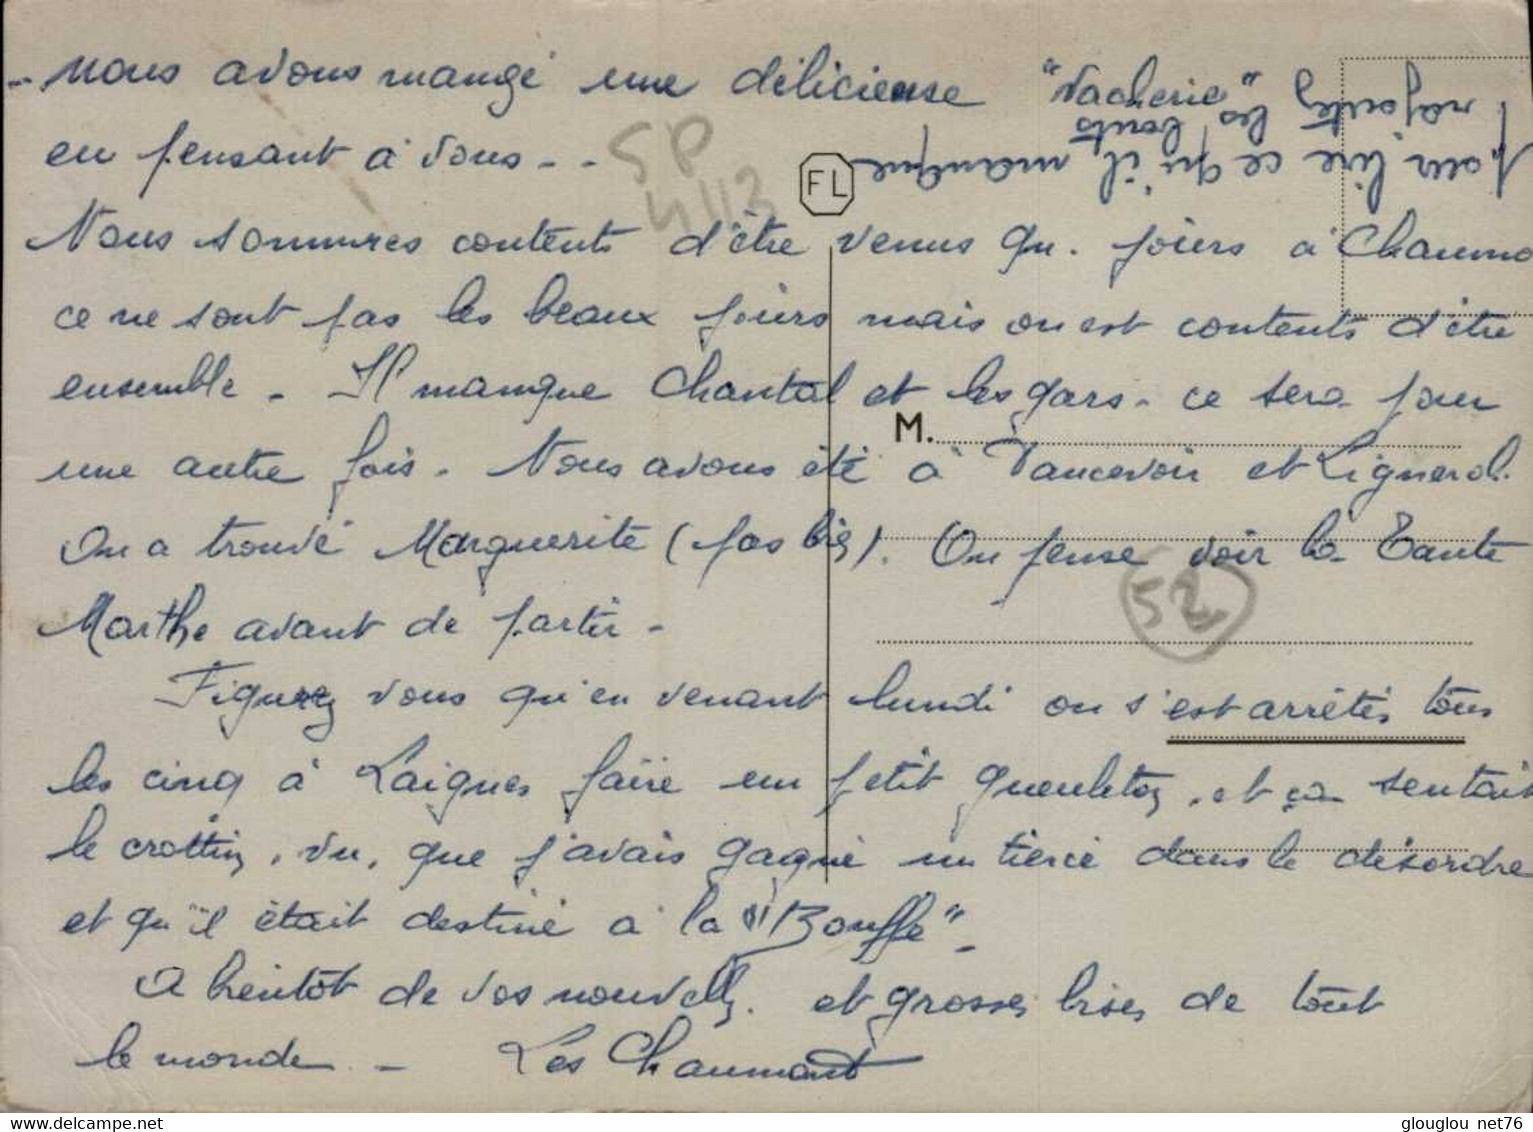 - nous avons mangé une délicieuse "Vacherie"
en pensant à vous - -
Pour lire ce qu'il manque
rajoutez les bouts
SP
4113
FL
Nous sommes contents d'être venus qq. jours à Chaumo
ce ne sont pas les beaux jours mais on est contents d'être
ensemble - Il manque Chantal et les gars - ce sera pour
M.
une autre fois - Nous avons été à Vaucevoir et Lignerol.
On a trouvé Marguerite (pas bis). On pense voir la Tante
52
Marthe avant de partir -
Figurez vous qu'en venant lundi on s'est arrêtés tous
les cinq à Laignes faire un petit gueuleton, et ça sentait
le crottin, vu, que j'avais gagné un tiercé dans le désordre
et qu'il était destiné à la "Bouffe" -
A bientôt de vos nouvelles. et grosses bises de tout
le monde - Les Chaumont
glouglou net76
www.delcampe.net